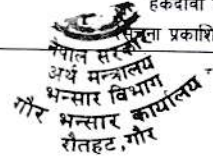 हकदावी
सूचना प्रकाशि
नेपाल सरकार
अर्थ मन्त्रालय
भन्सार विभाग
गौर भन्सार कार्यालय
रौतहट, गौर